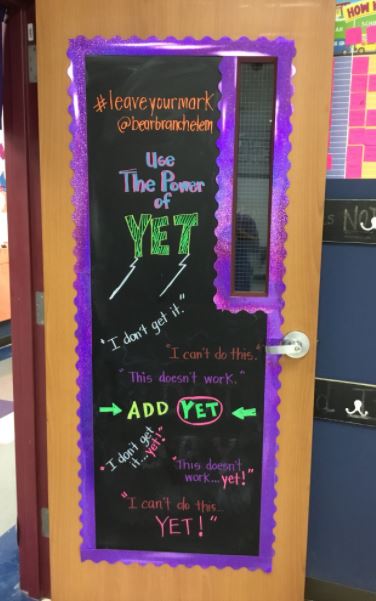 #leaveyourmark
@bearbranchelem
Use
The Power
of
YET
"I don't get it."
"I can't do this."
"This doesn't work."
ADD YET
"I don't get
it...yet!"
"This doesn't
work...yet!"
"I can't do this...
YET!"
HOW